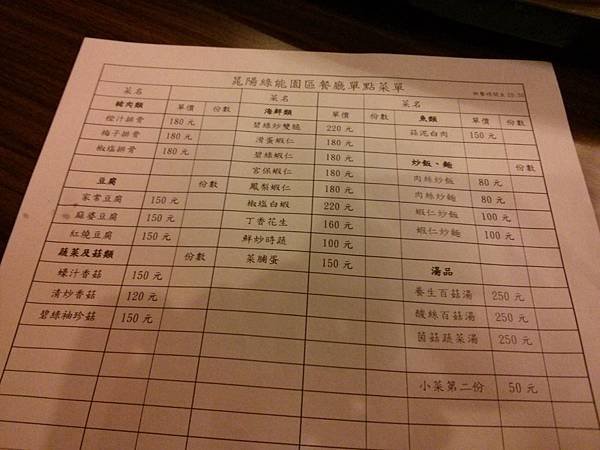 崑陽綠能園區餐廳單點菜單
菜名 菜名 菜名
豬肉類 單價 份數 海鮮類 單價 份數 魚類 單價 份數
橙汁排骨 180元 碧綠炒雙脆 220元 蒜泥白肉 150元
梅子排骨 180元 滑蛋蝦仁 180元
椒塩排骨 180元 碧綠蝦仁 180元 炒飯、麵
宮保蝦仁 180元 肉絲炒飯 80元
豆腐 份數 鳳梨蝦仁 180元 肉絲炒麵 80元
家常豆腐 150元 椒塩白蝦 220元 蝦仁炒飯 100元
麻婆豆腐 150元 丁香花生 160元 蝦仁炒麵 100元
紅燒豆腐 150元 鮮炒時蔬 100元
蔬菜及菇類 份數 菜脯蛋 150元 湯品
蠔汁香菇 150元 養生百菇湯 250元
清炒香菇 120元 酸絲百菇湯 250元
碧綠袖珍菇 150元 茵菇蔬菜湯 250元
小菜第二份 50元